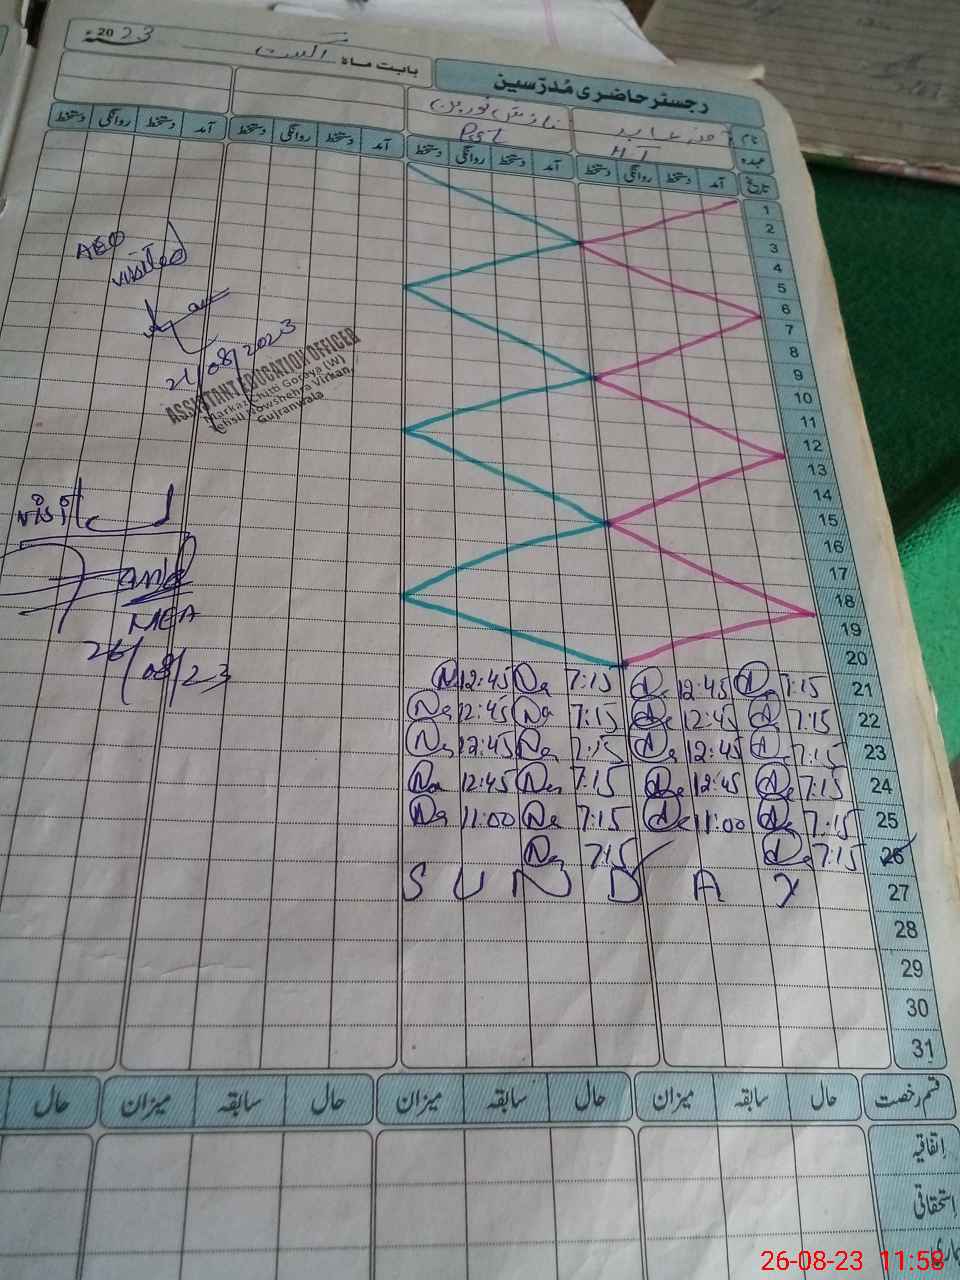 رجسٹر حاضری مُدرّسین
بابت ماہ اگست 2023
نام
عہدہ H.T Psst
تاریخ آمد دستخط روانگی دستخط آمد دستخط روانگی دستخط آمد دستخط روانگی دستخط آمد دستخط روانگی دستخط
1
2
3
4
5
6
7
8
9
10
11
12
13
14
15
16
17
18
19
20
12:45 Na 7:15 12:45 7:15 21
Na 12:45 Na 7:15 12:45 7:15 22
Na 12:45 Na 7:15 12:45 7:15 23
Na 12:45 Na 7:15 12:45 7:15 24
Na 11:00 Na 7:15 11:00 7:15 25
Na 7:15 7:15 26
S U N D A Y 27
28
29
30
31
AEO
visited
21/08/2023
ASSISTANT EDUCATION OFFICER
Markaz Chitti Goraya (W)
Tehsil Nowshehra Virkan,
Gujranwala
visit
MEA
26/08/23
قسم رخصت حال سابقہ میزان حال سابقہ میزان حال سابقہ میزان حال
اِتفاقیہ
اِستحقاقی
26-08-23 11:58